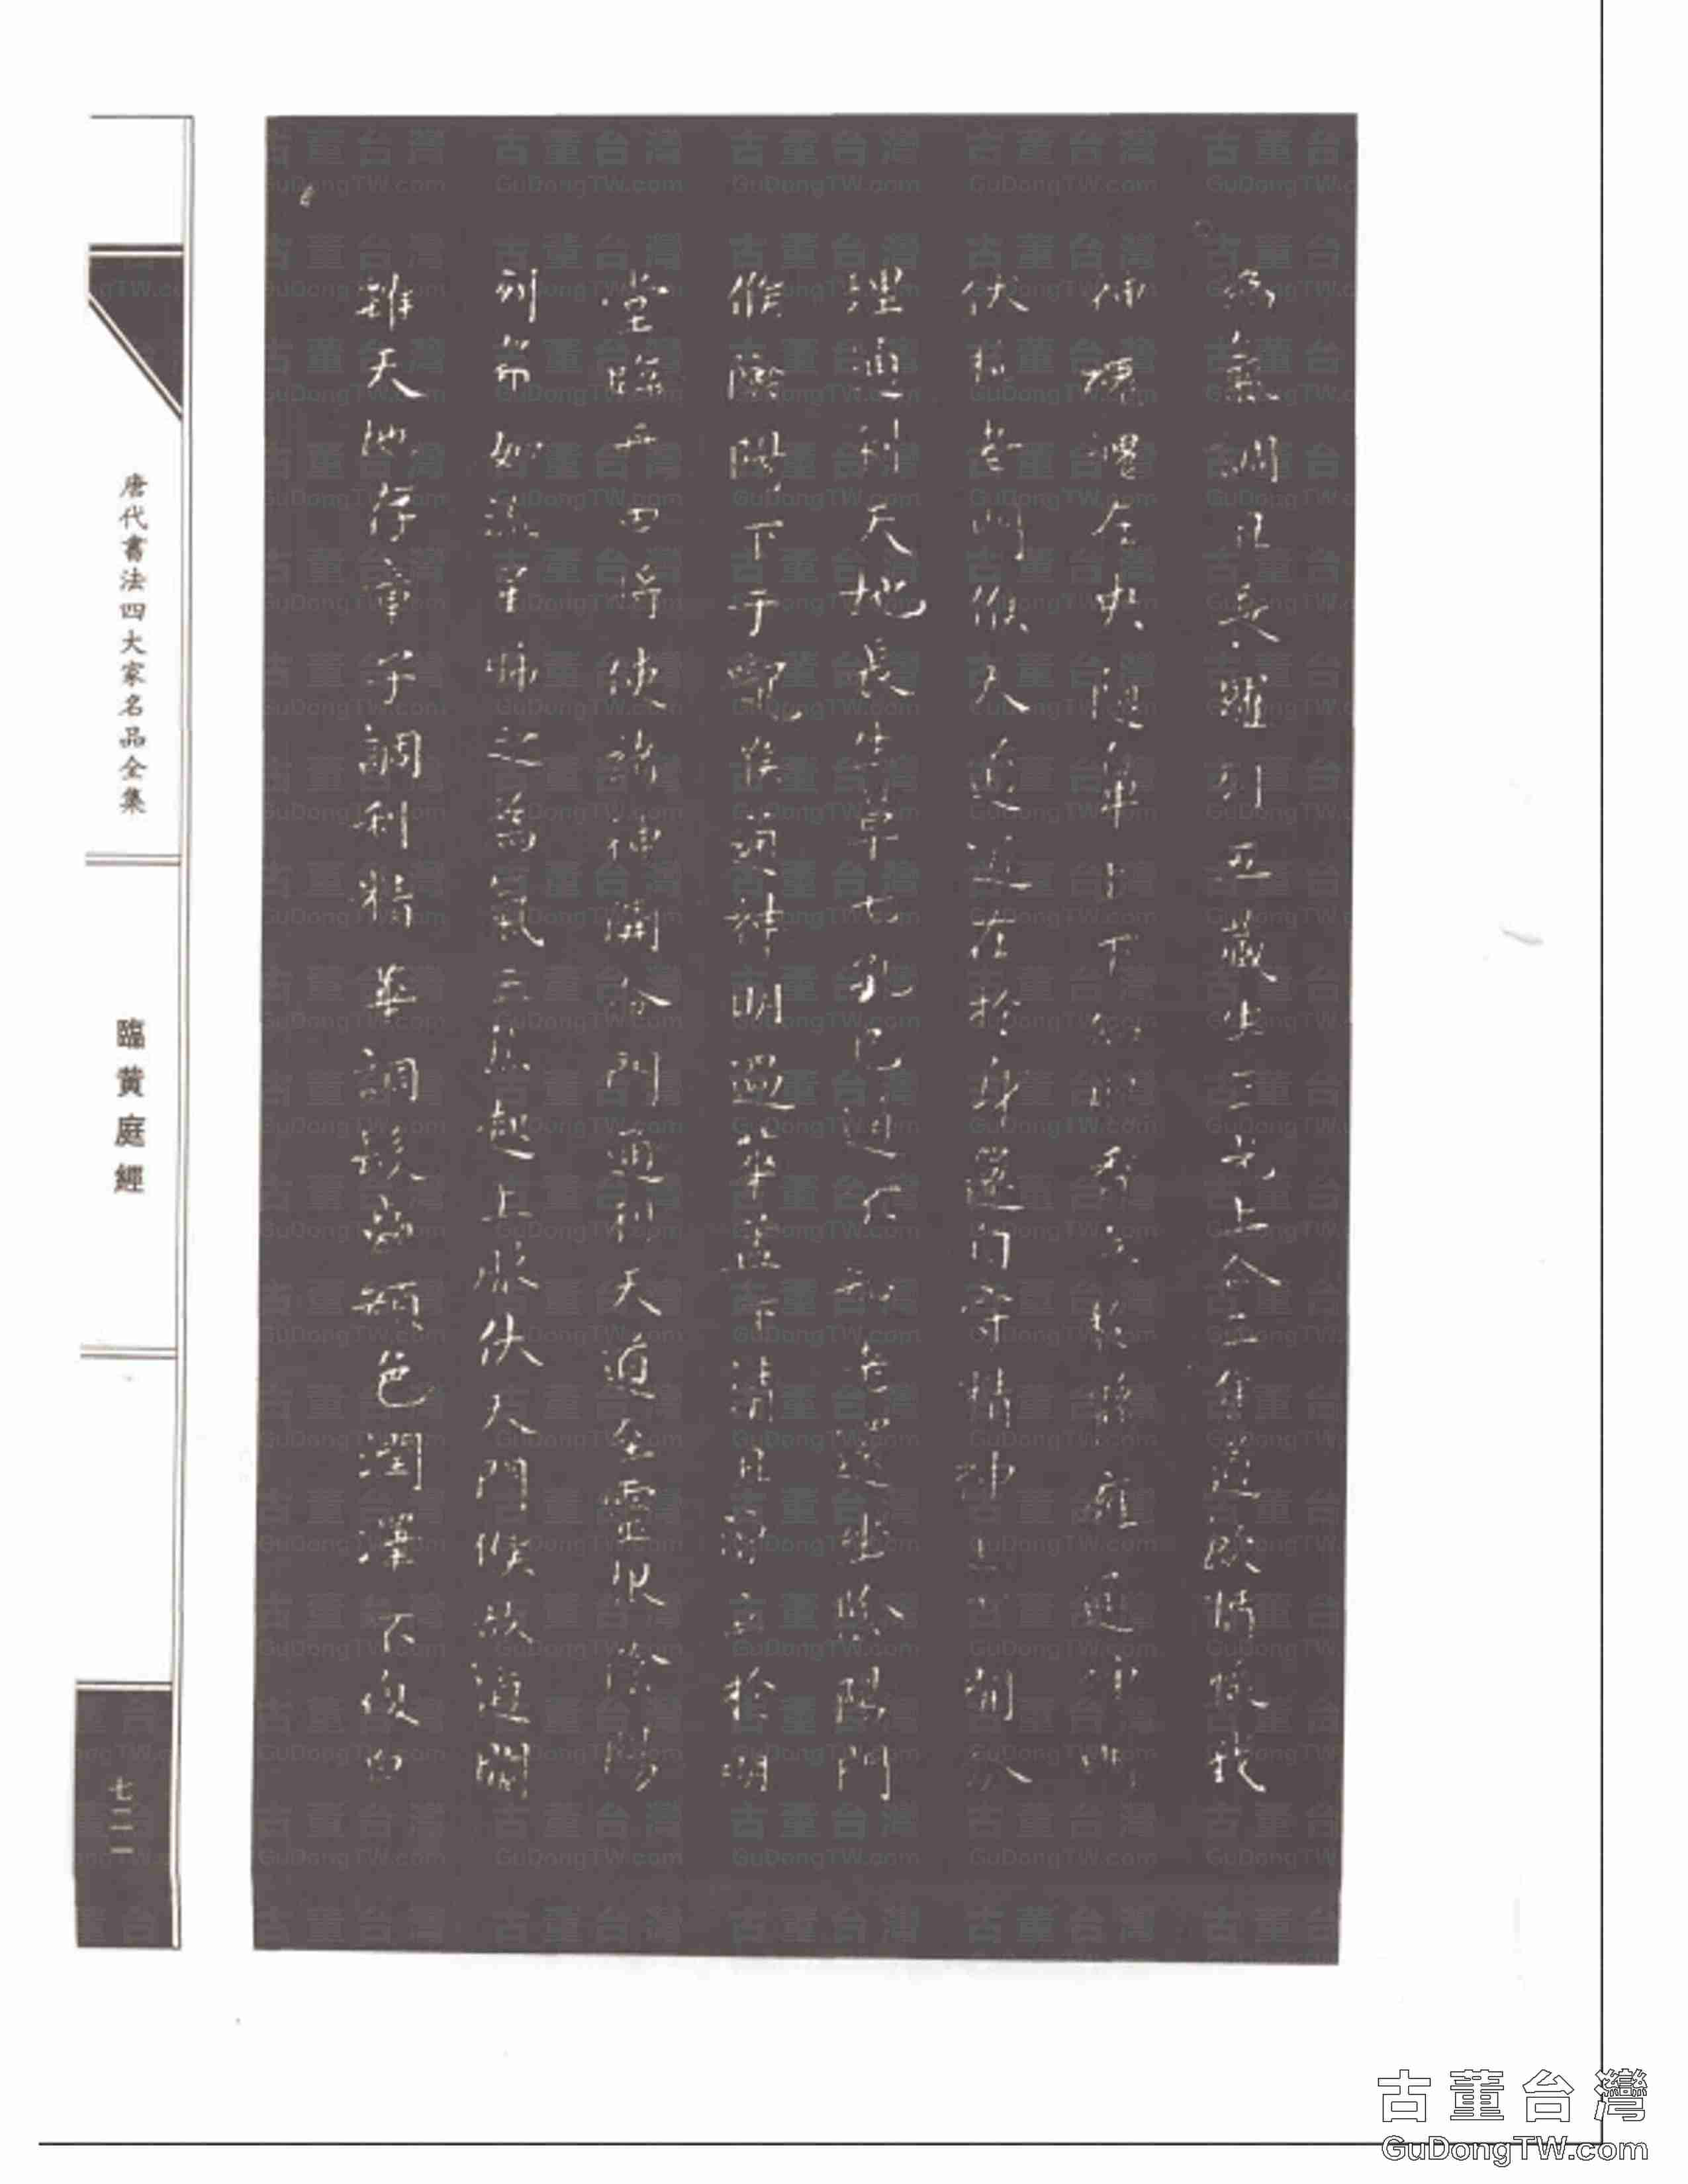 氣調且長䍿列五藏生三光上合三焦道飲醬漿我
神魂魄在中央隨鼻上下知肥香立於懸膺通神明
伏於老門候天道近在於身還自守精神上下關分
理通利天地長生草七孔已通不知老還坐陰陽門
候陰陽下于嚨喉通神明過華蓋下清且涼立於明
堂臨丹田將使諸神開命門通利天道至靈根陰陽
列布如流星肺之為氣三焦起上服伏天門候故道闚
離天地存童子調利精華調髮齒顏色潤澤不復白
唐代書法四大家名品全集
臨黃庭經
七二一
古董台灣
GuDongTW.com